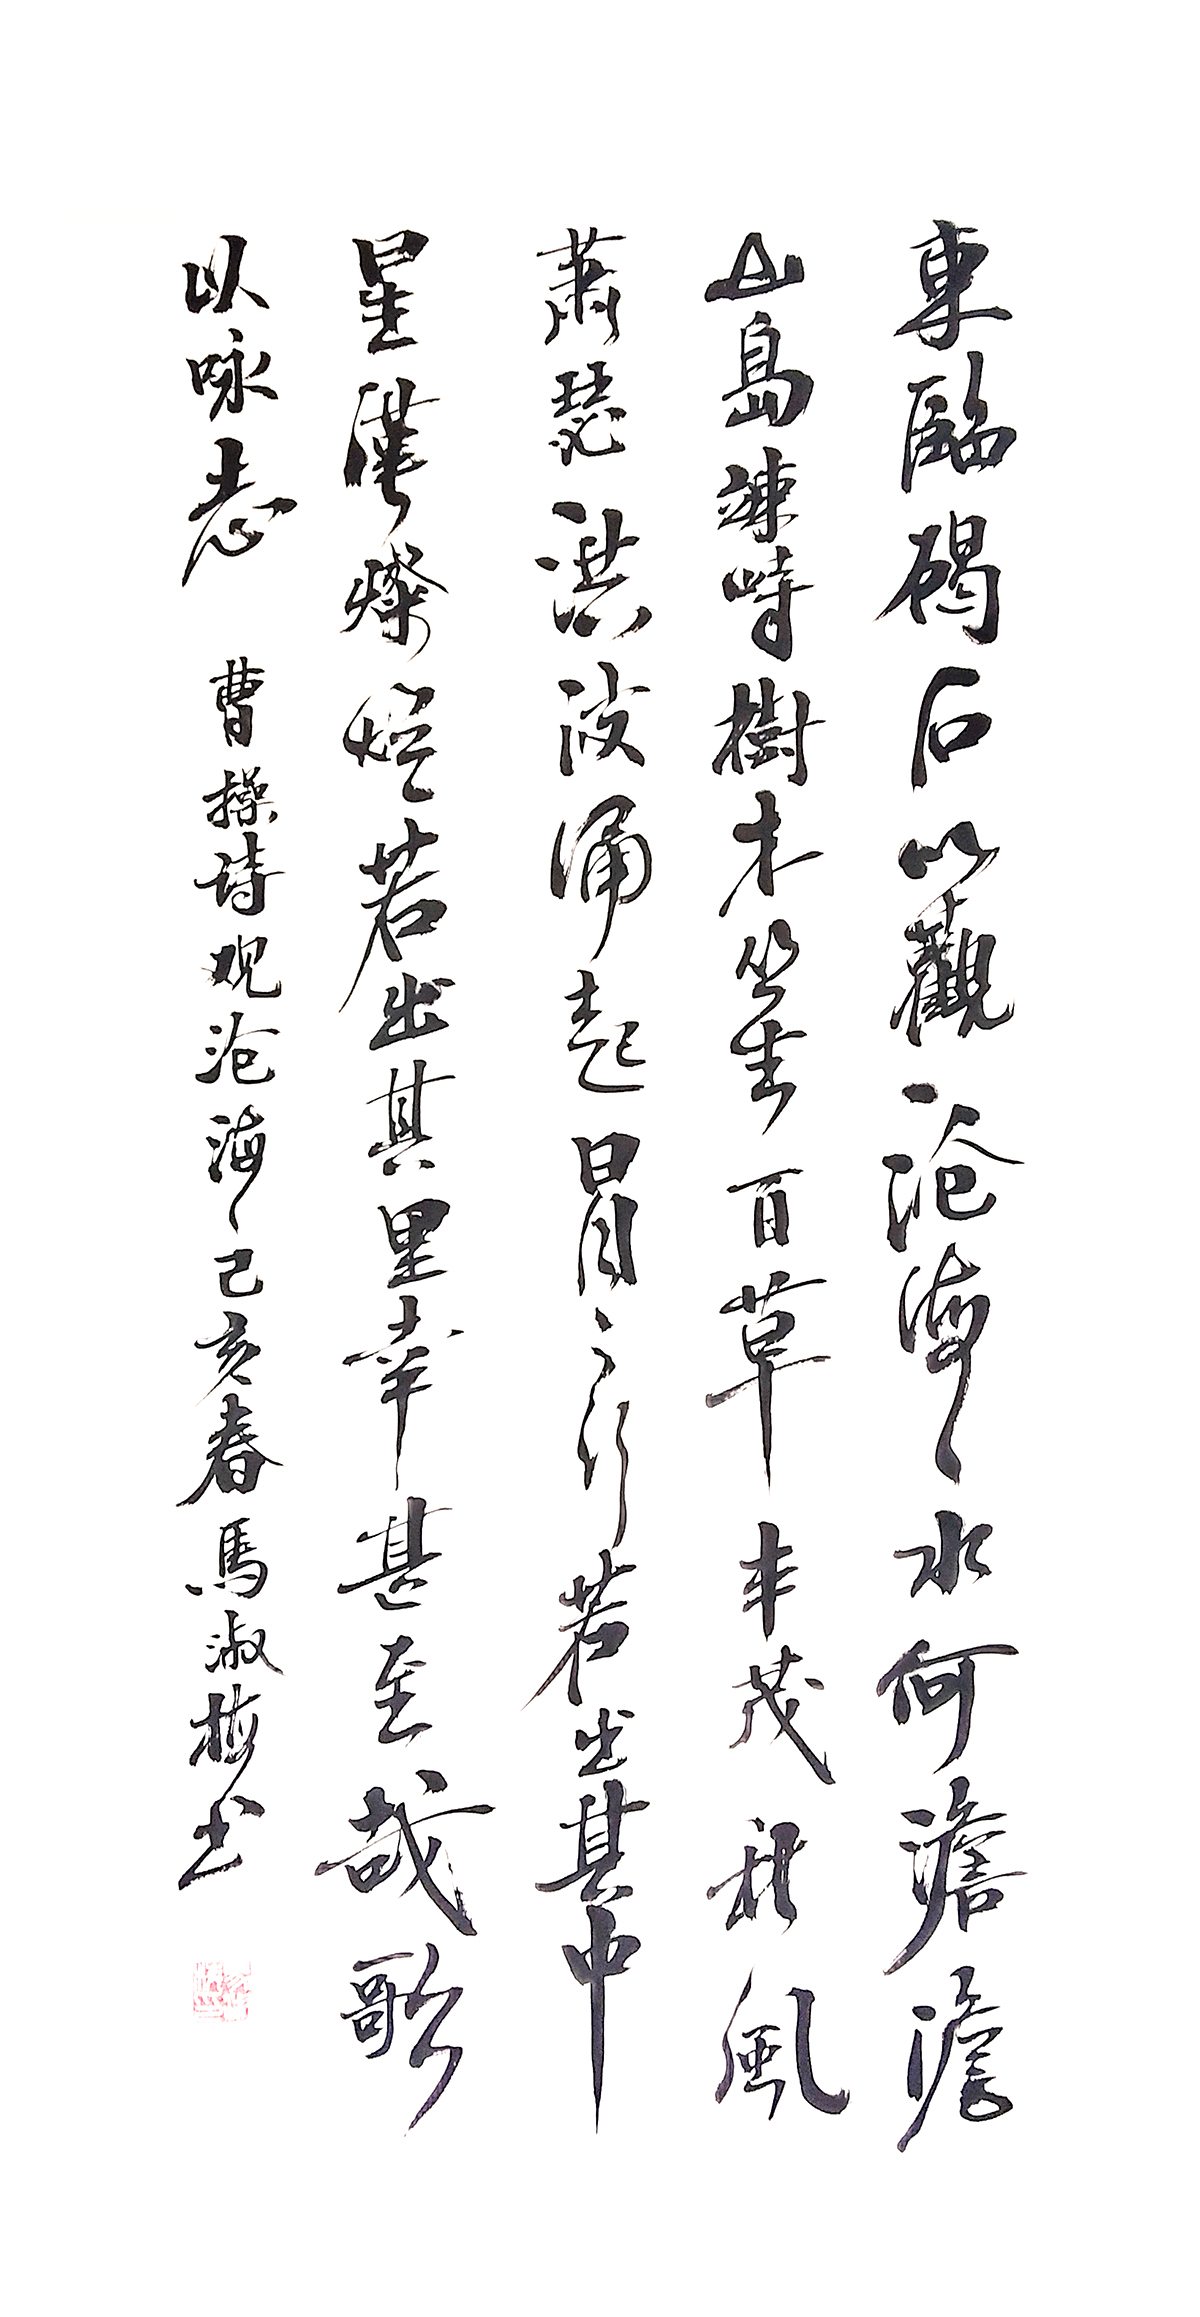 東臨碣石以觀沧海水何澹澹
山島竦峙樹木丛生百草丰茂秋風
蕭瑟洪波涌起日月之行若出其中
星漢燦爛若出其里幸甚至哉歌
以咏志 曹操诗观沧海己亥春馬淑梅书